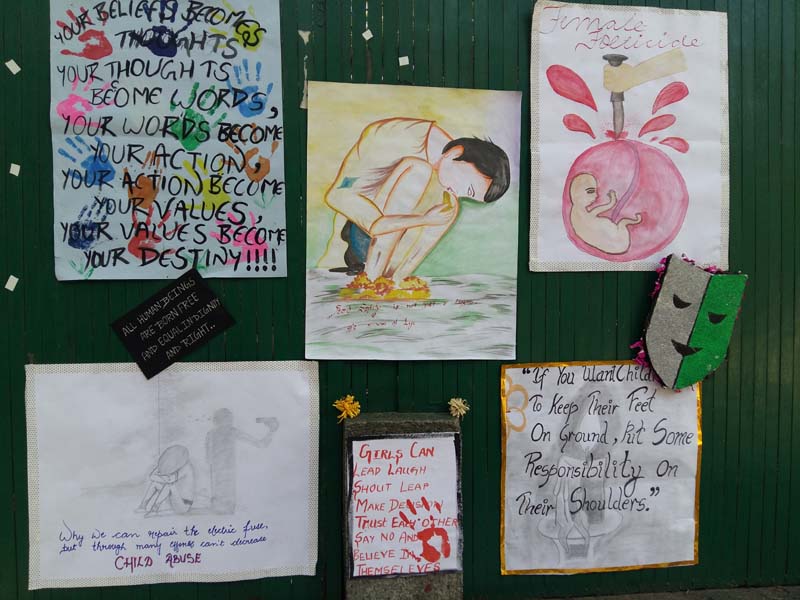 YOUR BELIEFS BECOMES
THOUGHTS
YOUR THOUGHTS
BECOME WORDS,
YOUR WORDS BECOME
YOUR ACTION,
YOUR ACTION BECOME
YOUR VALUES,
YOUR VALUES BECOME
YOUR DESTINY!!!!
Female
Foeticide
ALL HUMAN BEINGS
ARE BORN FREE
AND EQUAL IN DIGNITY
AND RIGHT..
Why we can repair the electric fuse,
but through many can't decrease
CHILD ABUSE
GIRLS CAN
LEAD LAUGH
SHOUT LEAP
MAKE DECISION
TRUST EACH OTHER
SAY NO AND
BELIEVE IN
THEMSELEVES
"If You Want Children
To Keep Their Feet
On Ground, Put Some
Responsibility On
Their Shoulders."